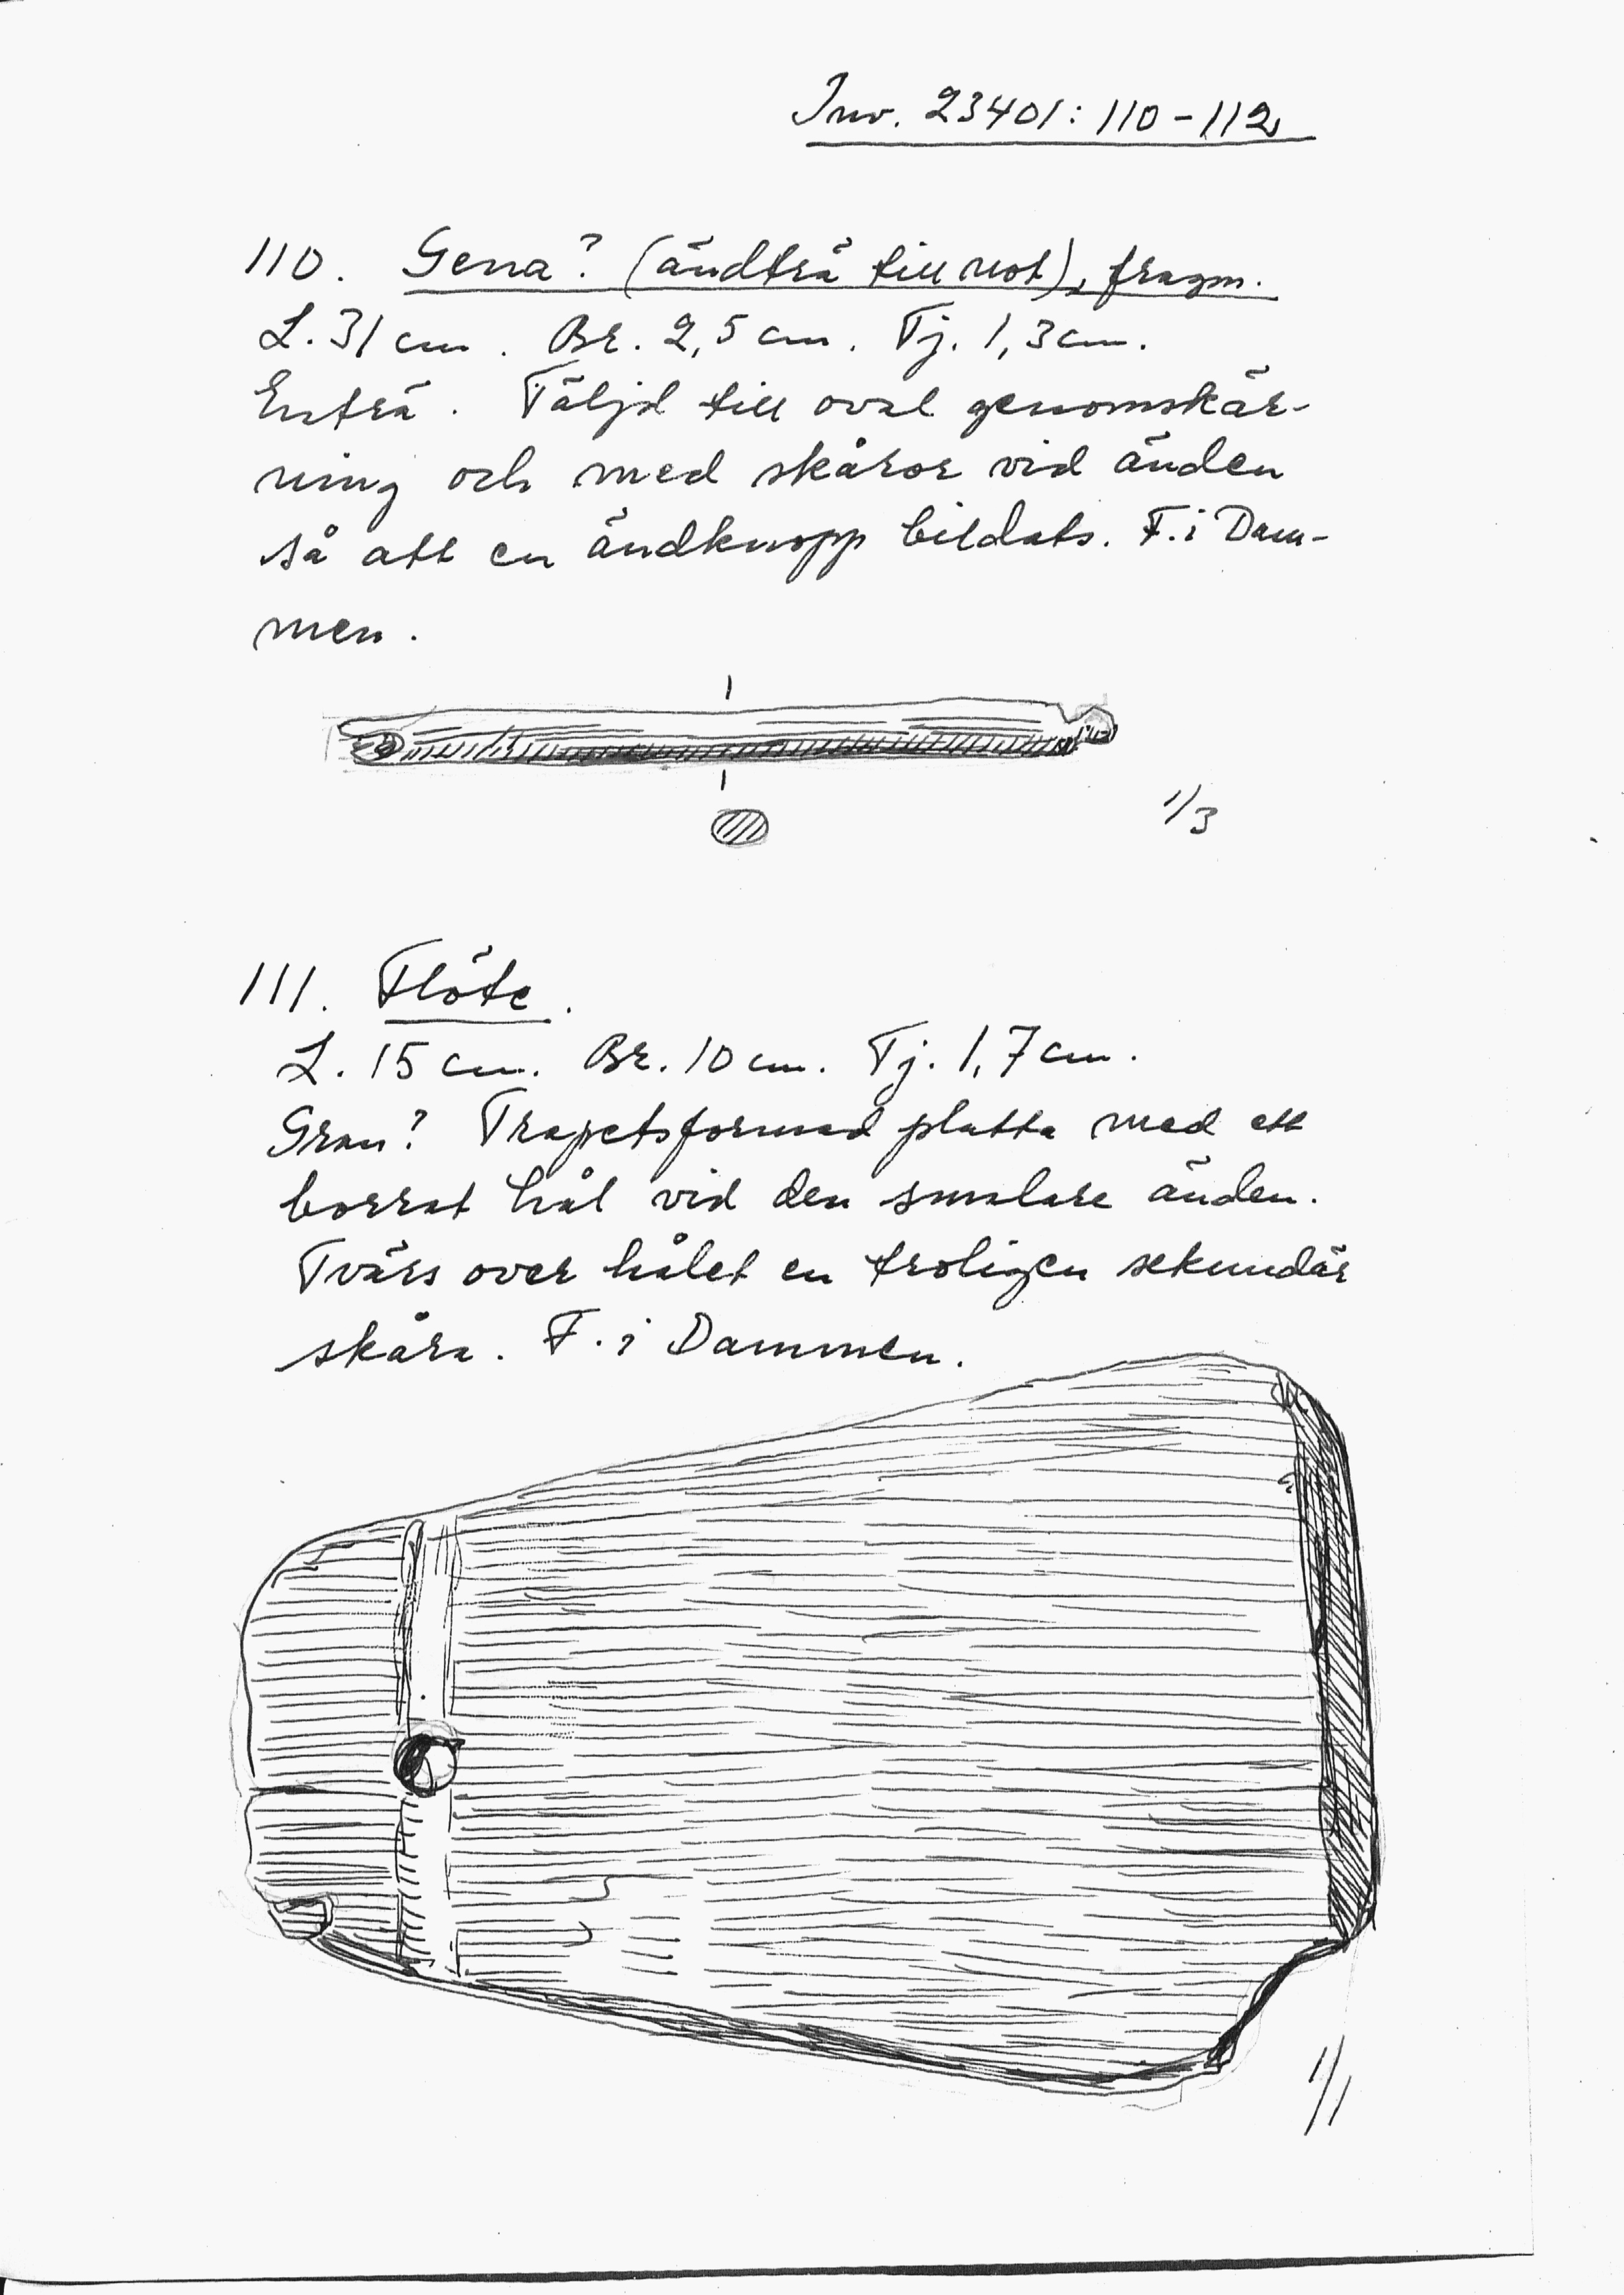 Inv. 23401:110-112
110. Gena? (ändträ till not), fragm.
L. 31 cm. Br. 2,5 cm. Tj. 1,3 cm.
Enträ. Täljd till oval genomskär-
ning och med skåror vid änden
så att en ändknopp bildats. F. i Dam-
men.
1/3
111. Flöte.
L. 15 cm. Br. 10 cm. Tj. 1,7 cm.
Gran? Trapetsformad platta med ett
borrat hål vid den smalare änden.
Tvärs över hålet en troligen sekundär
skåra. F. i Dammen.
1/1